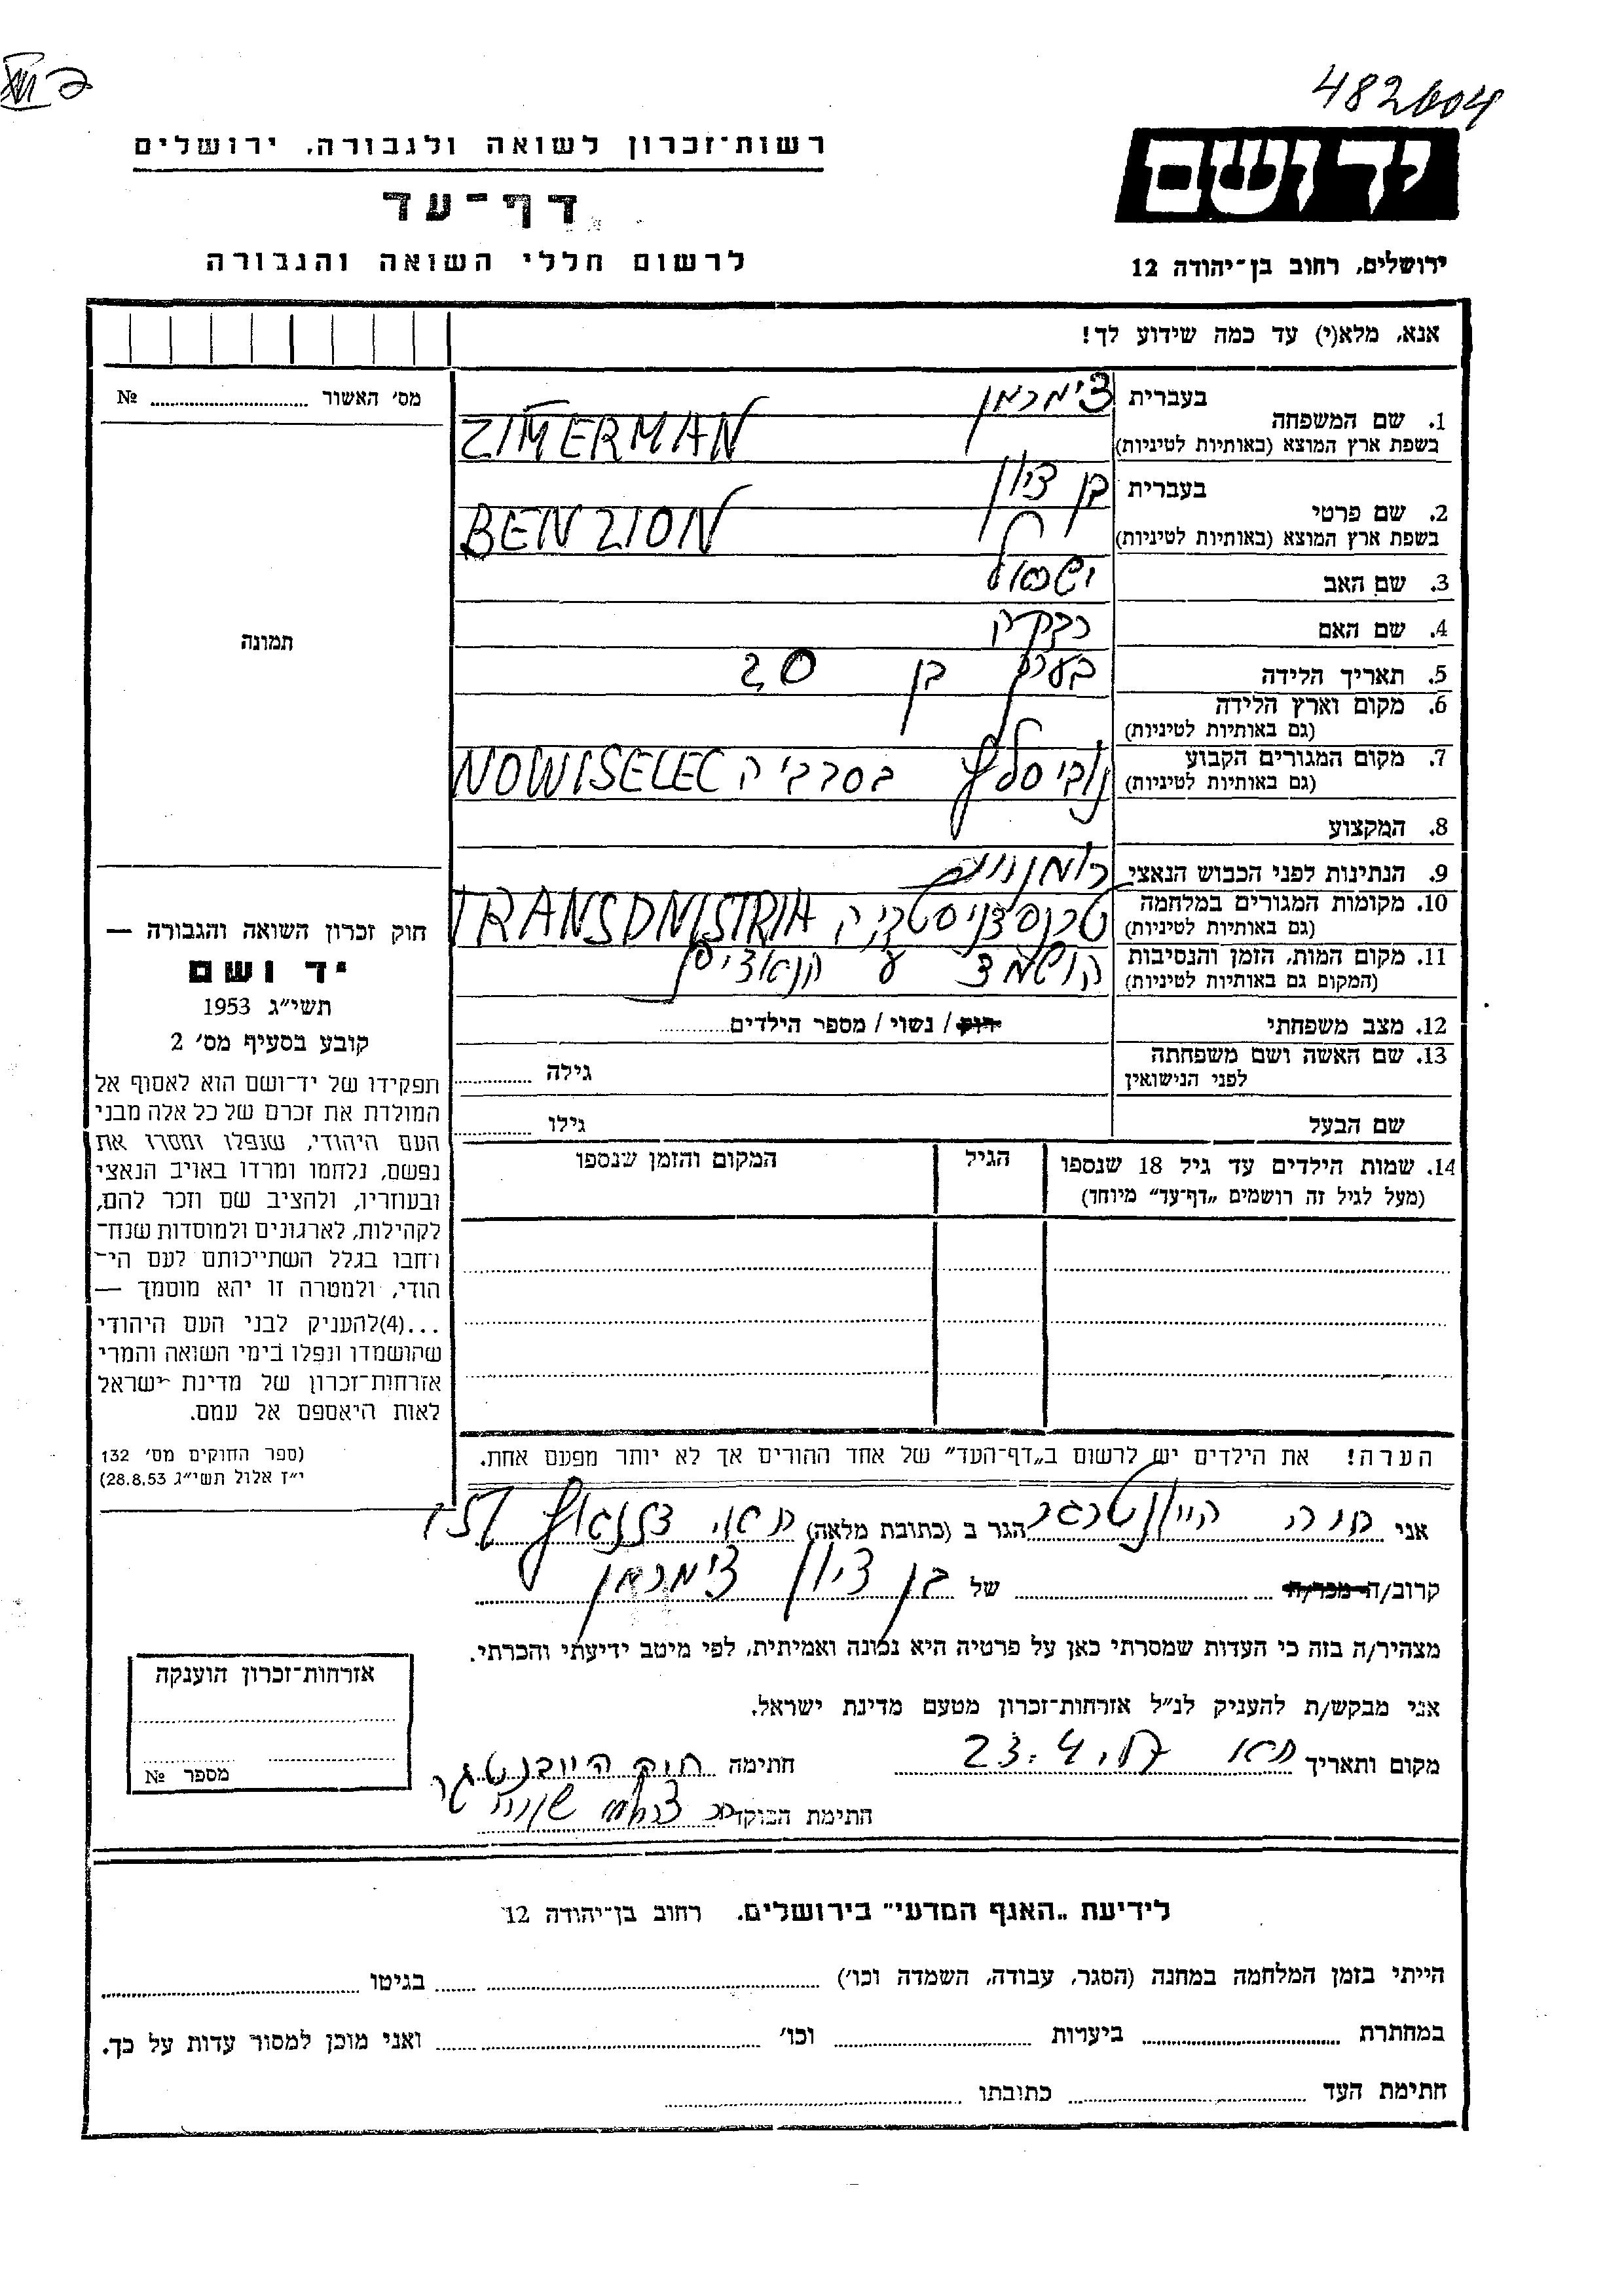 482604
רשות־זכרון לשואה ולגבורה, ירושלים
יד ושם
דף־עד
לרשום חללי השואה והגבורה
ירושלים, רחוב בן־יהודה 12
אנא, מלא(י) עד כמה שידוע לך!
מס׳ האשור № ........
תמונה
בעברית צימרמן
1. שם המשפחה
בשפת ארץ המוצא (באותיות לטיניות) ZIMERMAN
בעברית בן ציון
2. שם פרטי
בשפת ארץ המוצא (באותיות לטיניות) BEN ZION
3. שם האב ישראל
4. שם האם רבקה
5. תאריך הלידה בערך בן 20
6. מקום וארץ הלידה
(גם באותיות לטיניות)
7. מקום המגורים הקבוע נובי סלץ בסרביה NOWISELEC
(גם באותיות לטיניות)
8. המקצוע
9. הנתינות לפני הכבוש הנאצי
10. מקומות המגורים במלחמה טרנסדניסטריה TRANSDNISTRIA
(גם באותיות לטיניות)
11. מקום המות, הזמן והנסיבות הושמד ע הנאצים
(המקום גם באותיות לטיניות)
12. מצב משפחתי רווק / נשוי / מספר הילדים........
13. שם האשה ושם משפחתה
לפני הנישואין גילה ........
שם הבעל גילו ........
14. שמות הילדים עד גיל 18 שנספו הגיל המקום והזמן שנספו
(מעל לגיל זה רושמים „דף־עד״ מיוחד)
הערה! את הילדים יש לרשום ב„דף־העד״ של אחד ההורים אך לא יותר מפעם אחת.
חוק זכרון השואה והגבורה —
יד ושם
תשי״ג 1953
קובע בסעיף מס׳ 2
תפקידו של יד־ושם הוא לאסוף אל
המולדת את זכרם של כל אלה מבני
העם היהודי, שנפלו ומסרו את
נפשם, נלחמו ומרדו באויב הנאצי
ובעוזריו, ולהציב שם וזכר להם,
לקהילות, לארגונים ולמוסדות שנח־
רחבו בגלל השתייכותם לעם הי־
הודי, ולמטרה זו יהא מוסמך —
...(4)להעניק לבני העם היהודי
שהושמדו ונפלו בימי השואה והמרי
אזרחות־זכרון של מדינת ישראל
לאות היאספם אל עמם.
(ספר החוקים מס׳ 132
י״ז אלול תשי״ג 28.8.53)
אני חוה הגר ב (כתובת מלאה)
קרוב/ה מכר/ה ........ של בן ציון צימרמן
מצהיר/ה בזה כי העדות שמסרתי כאן על פרטיה היא נכונה ואמיתית, לפי מיטב ידיעתי והכרתי.
אני מבקש/ת להעניק לנ״ל אזרחות־זכרון מטעם מדינת ישראל.
מקום ותאריך 23.4 חתימה חוה
חתימת הפוקד
אזרחות־זכרון הוענקה
מספר №
לידיעת „האגף המדעי״ בירושלים. רחוב בן־יהודה 12
הייתי בזמן המלחמה במחנה (הסגר, עבודה, השמדה וכו׳) ........ בגיטו ........
במחתרת ........ ביערות ........ וכו׳ ........ ואני מוכן למסור עדות על כך.
חתימת העד ........ כתובתו ........